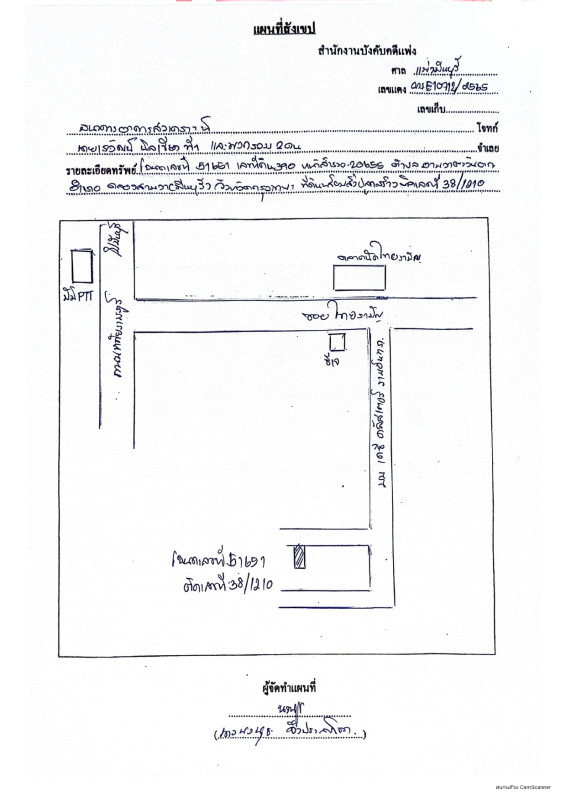 แผนที่สังเขป
สำนักงานบังคับคดีแพ่ง
ศาล แพ่งมีนบุรี
เลขแดง ผบE10712/2565
เลขเก็บ
ธนาคารอาคารสงเคราะห์ โจทก์
และพวกรวม 2 คน จำเลย
รายละเอียดทรัพย์ โฉนดเลขที่ 51651 เลขที่ดิน 390 หน้าสำรวจ 20655 ตำบล สามวาตะวันตก
อำเภอ คลองสามวา(มีนบุรี) จังหวัดกรุงเทพฯ ที่ดินพร้อมสิ่งปลูกสร้างติดเลขที่ 38/1210
ปั๊ม PTT
ถนนหทัยราษฎร์
ตลาดนัดไทยรามัญ
ซอย ไทยรามัญ
ซีเจ
โฉนดเลขที่ 51651
ติดเลขที่ 38/1210
ผู้จัดทำแผนที่